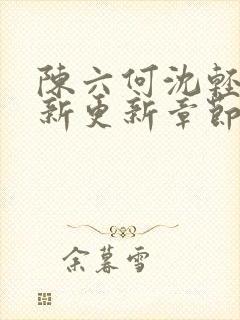 陳六何沈輕
新更新章節
余暮雪